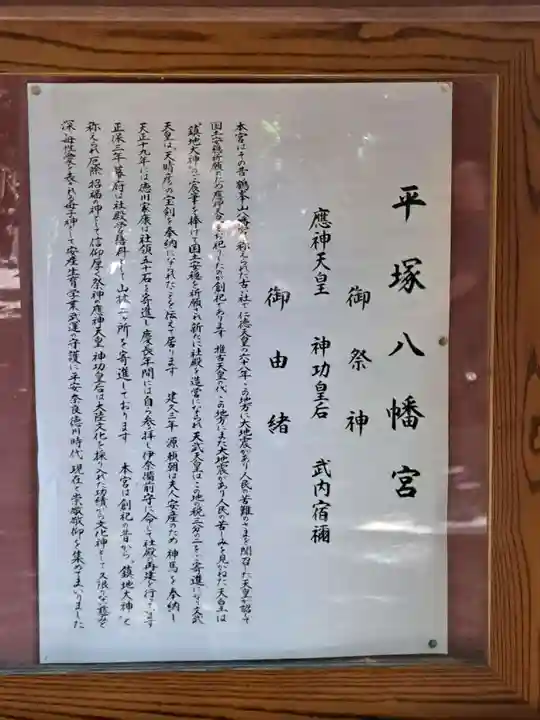 平塚八幡宮
御祭神
應神天皇　神功皇后　武内宿禰
御由緒
本宮はその昔鶴峯山八幡宮と称えられた古い社で仁徳天皇の六十八年この地方に大地震があり人民の苦難のさまを聞召した天皇が詔して
国土安穏祈願のため應神天皇をお祀りしたのが創祀であります 推古天皇の代この地方にまた大地震があり人民が苦しみを見かねた天皇は
"鎮地大神"のご宸筆を捧げて国土安穏を祈願され新たに社殿を造営になられ天武天皇はこの地の税三分の二をご寄進になり文武
天皇は天晴彦の宝剣を奉納になられたことを伝えて居ります 建久三年 源頼朝は夫人安産のため神馬を奉納し
天正十九年には徳川家康は社領五十石を寄進し慶長年間には自ら参拝し伊奈備前守に命じて社殿の再建を行っています
正保三年 幕府は社殿の修繕料として山林二ヶ所を寄進しております 本宮は創祀の昔から"鎮地大神"と
称えられ厄除招福の神として信仰厚く祭神の應神天皇 神功皇后は大陸文化を採り入れた功績から文化神として久しい
深い母性愛を表される母子神として安産生育学業武運の守護に平安奈良徳川時代 現在と崇敬敬仰を集めてまいりました